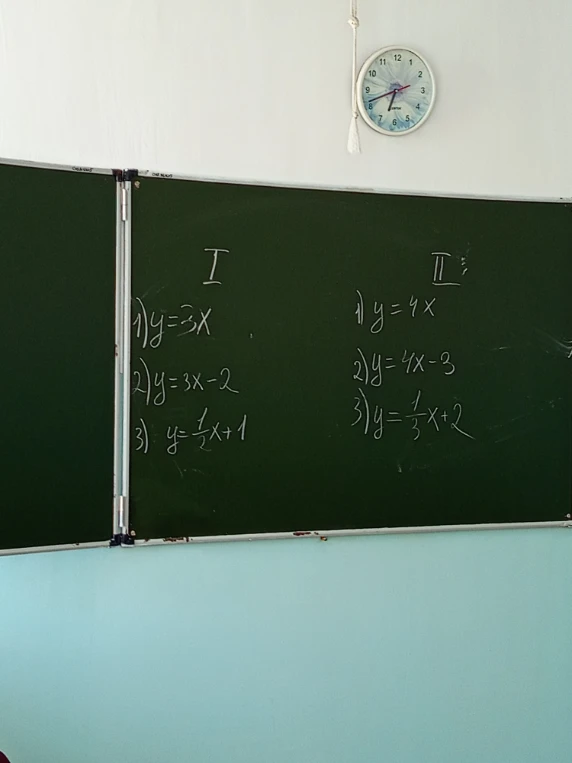 12
11 1
10 2
9 3
8 4
7 5
6
I
1) y=3x
2) y=3x-2
3) y=1/2x+1
II
1) y=4x
2) y=4x-3
3) y=1/3x+2